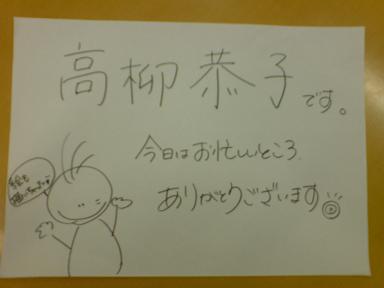 高柳恭子です。
今日はお忙しいところ
ありがとうございます
絵も
描いちゃった